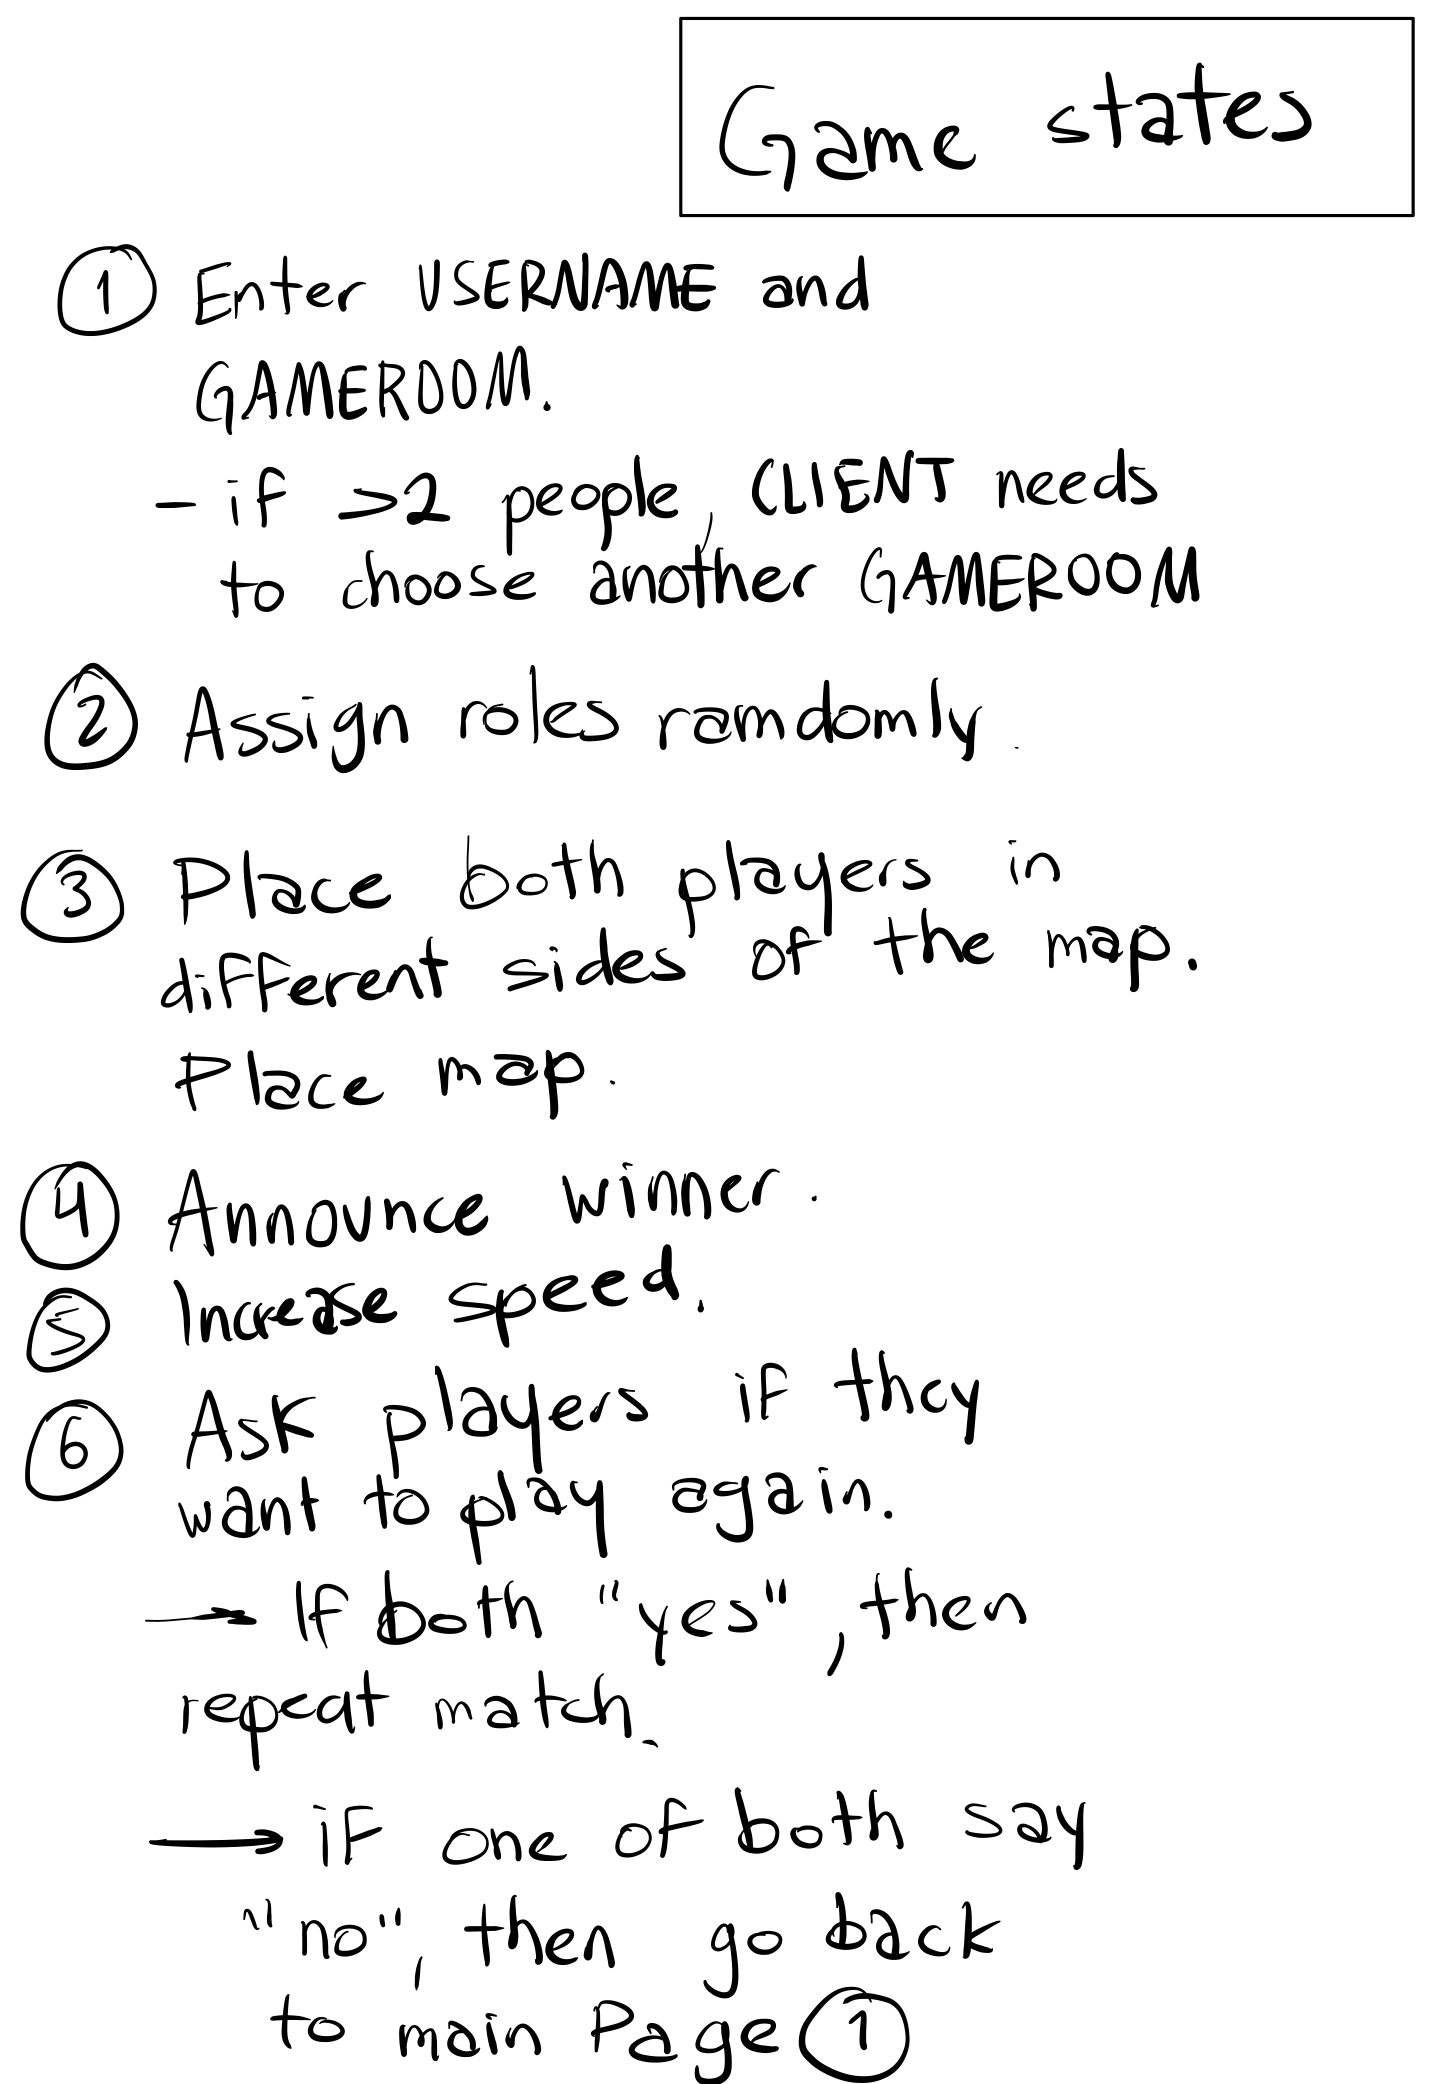 Game states
① Enter USERNAME and
GAMEROOM.
- if >2 people, CLIENT needs
to choose another GAMEROOM
② Assign roles ramdomly.
③ Place both players in
different sides of the map.
Place map.
④ Announce winner.
⑤ Increase speed.
⑥ Ask players if they
want to play again.
→ If both "yes", then
repeat match.
→ if one of both say
"no", then go back
to main Page ①